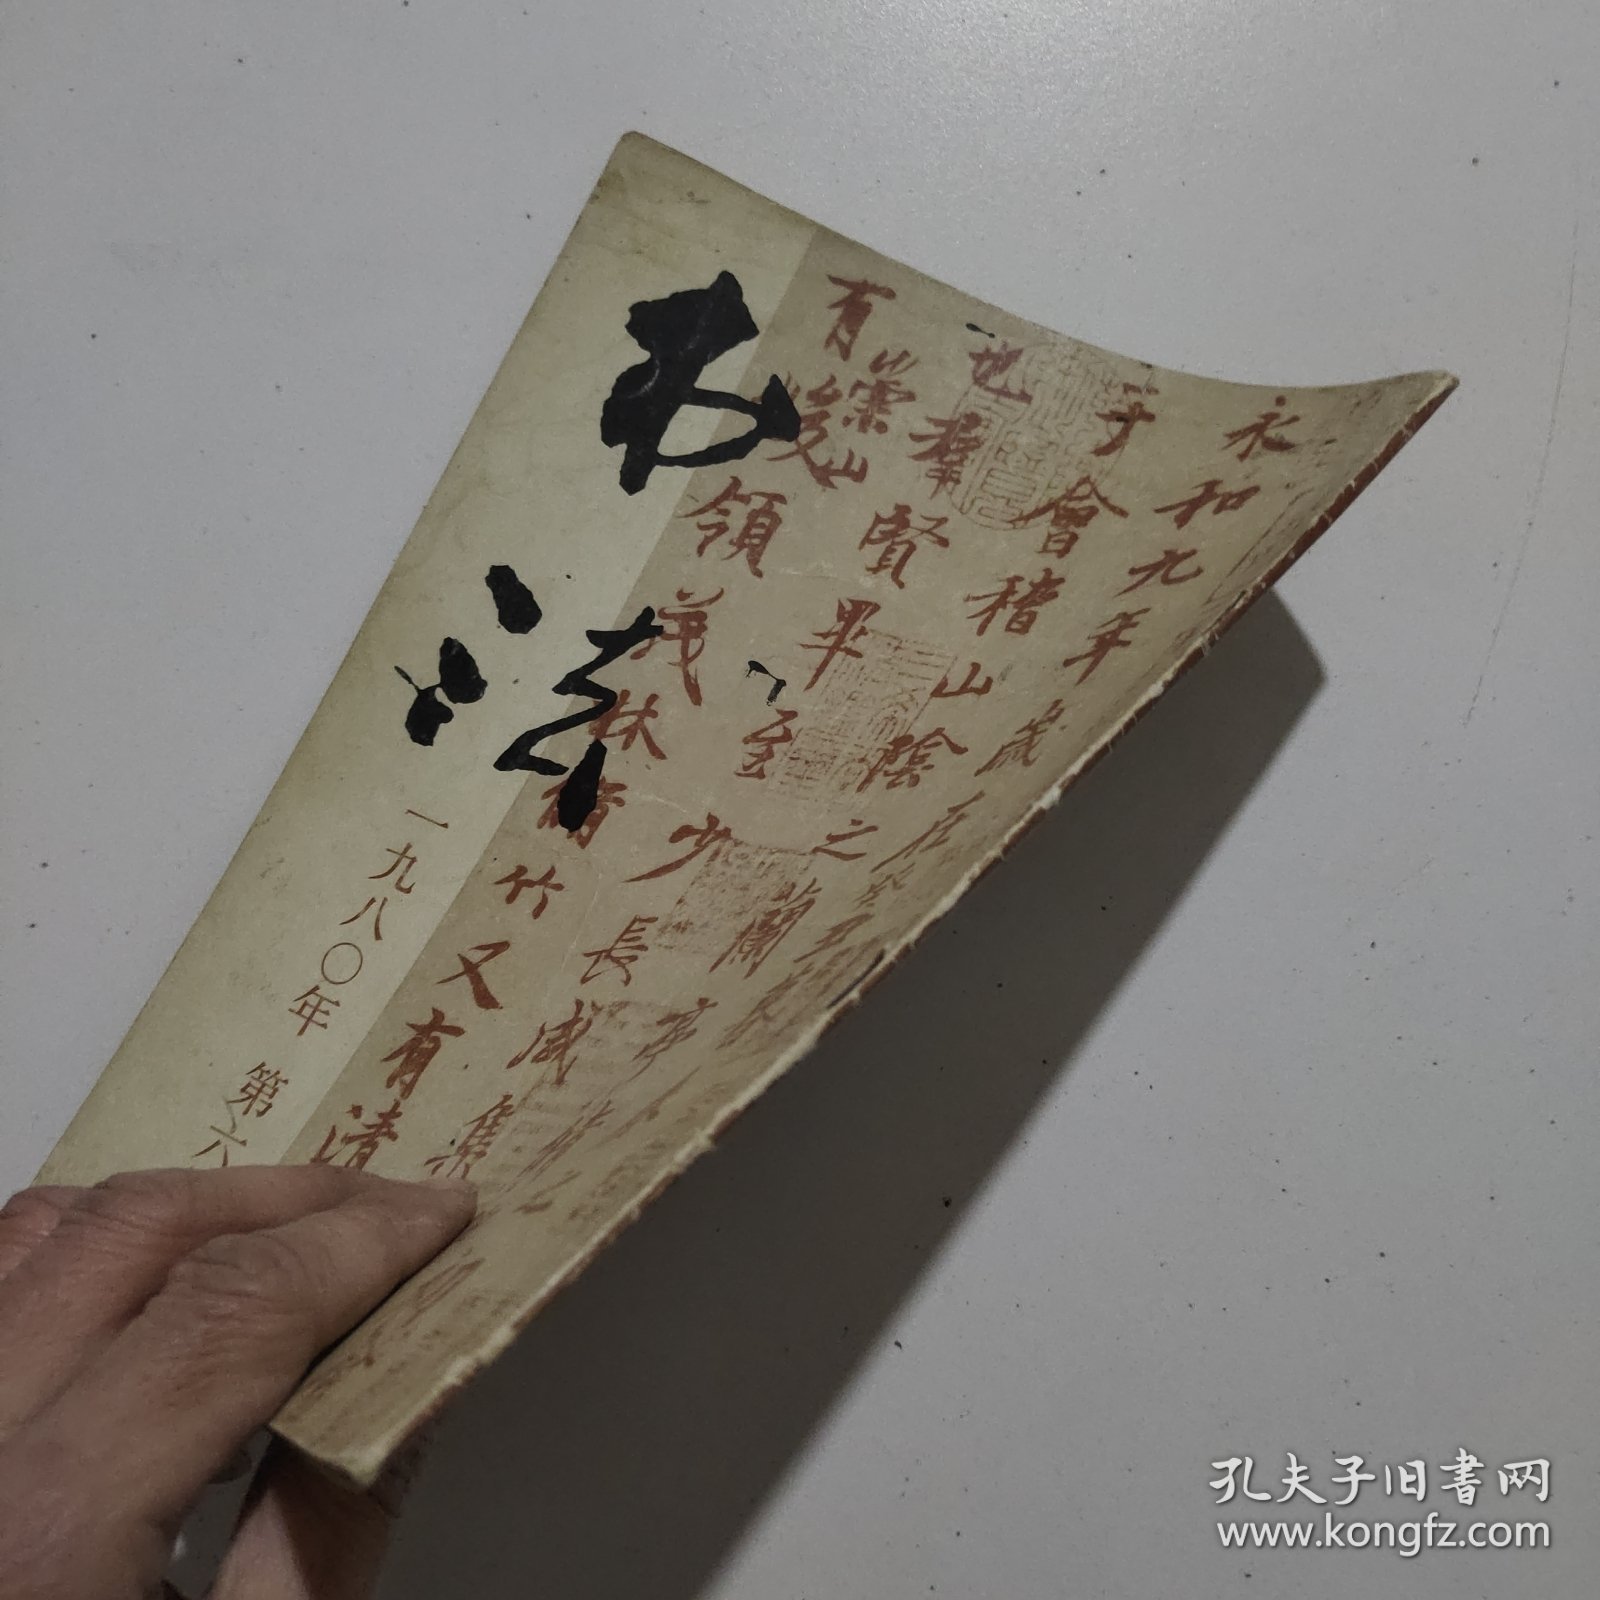 书法
一九八〇年 第六
永和九年歲在癸丑暮
于會稽山陰之蘭亭
也羣賢畢至少長咸集
有崇山
峻領茂林脩竹又有清
孔夫子旧书网
www.kongfz.com